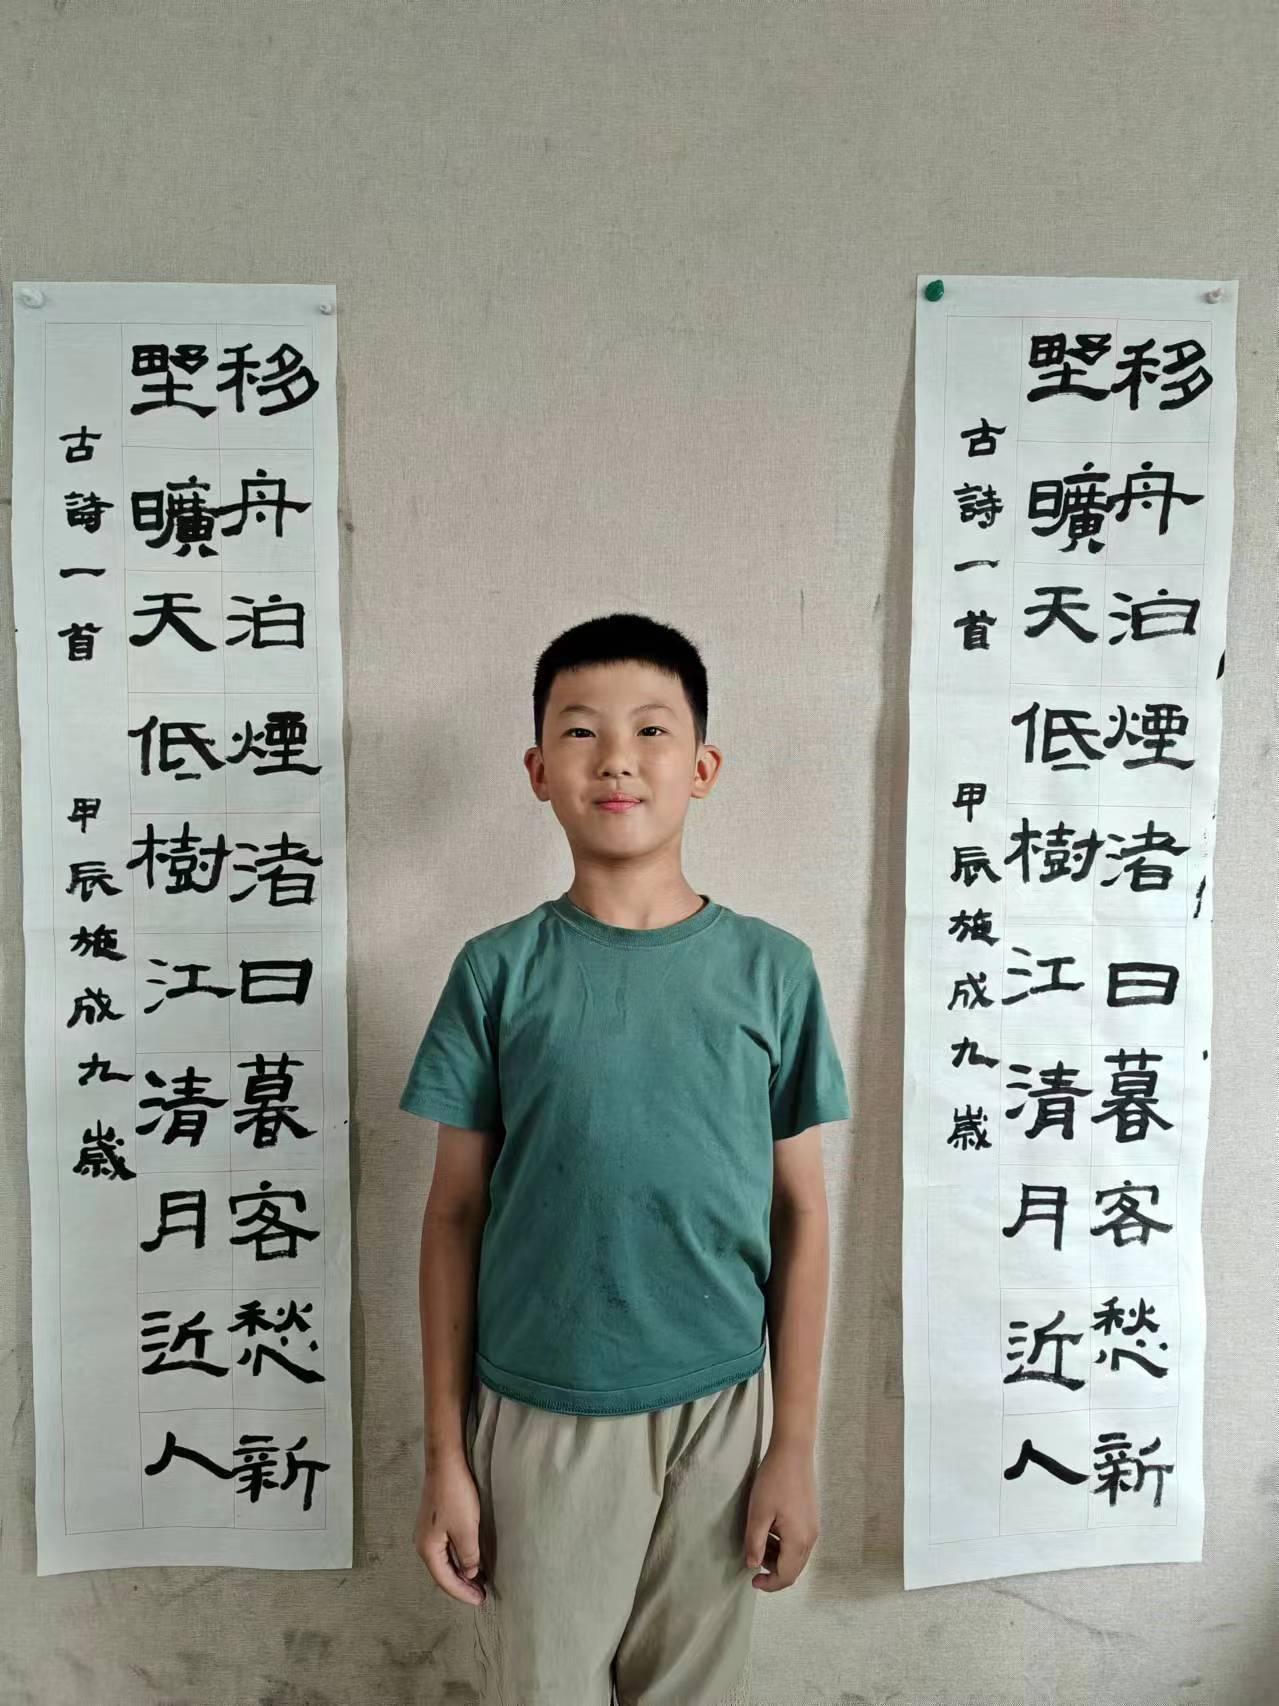 移舟泊煙渚日暮客愁新
野曠天低樹江清月近人
古詩一首 甲辰施成九歲
移舟泊煙渚日暮客愁新
野曠天低樹江清月近人
古詩一首 甲辰施成九歲